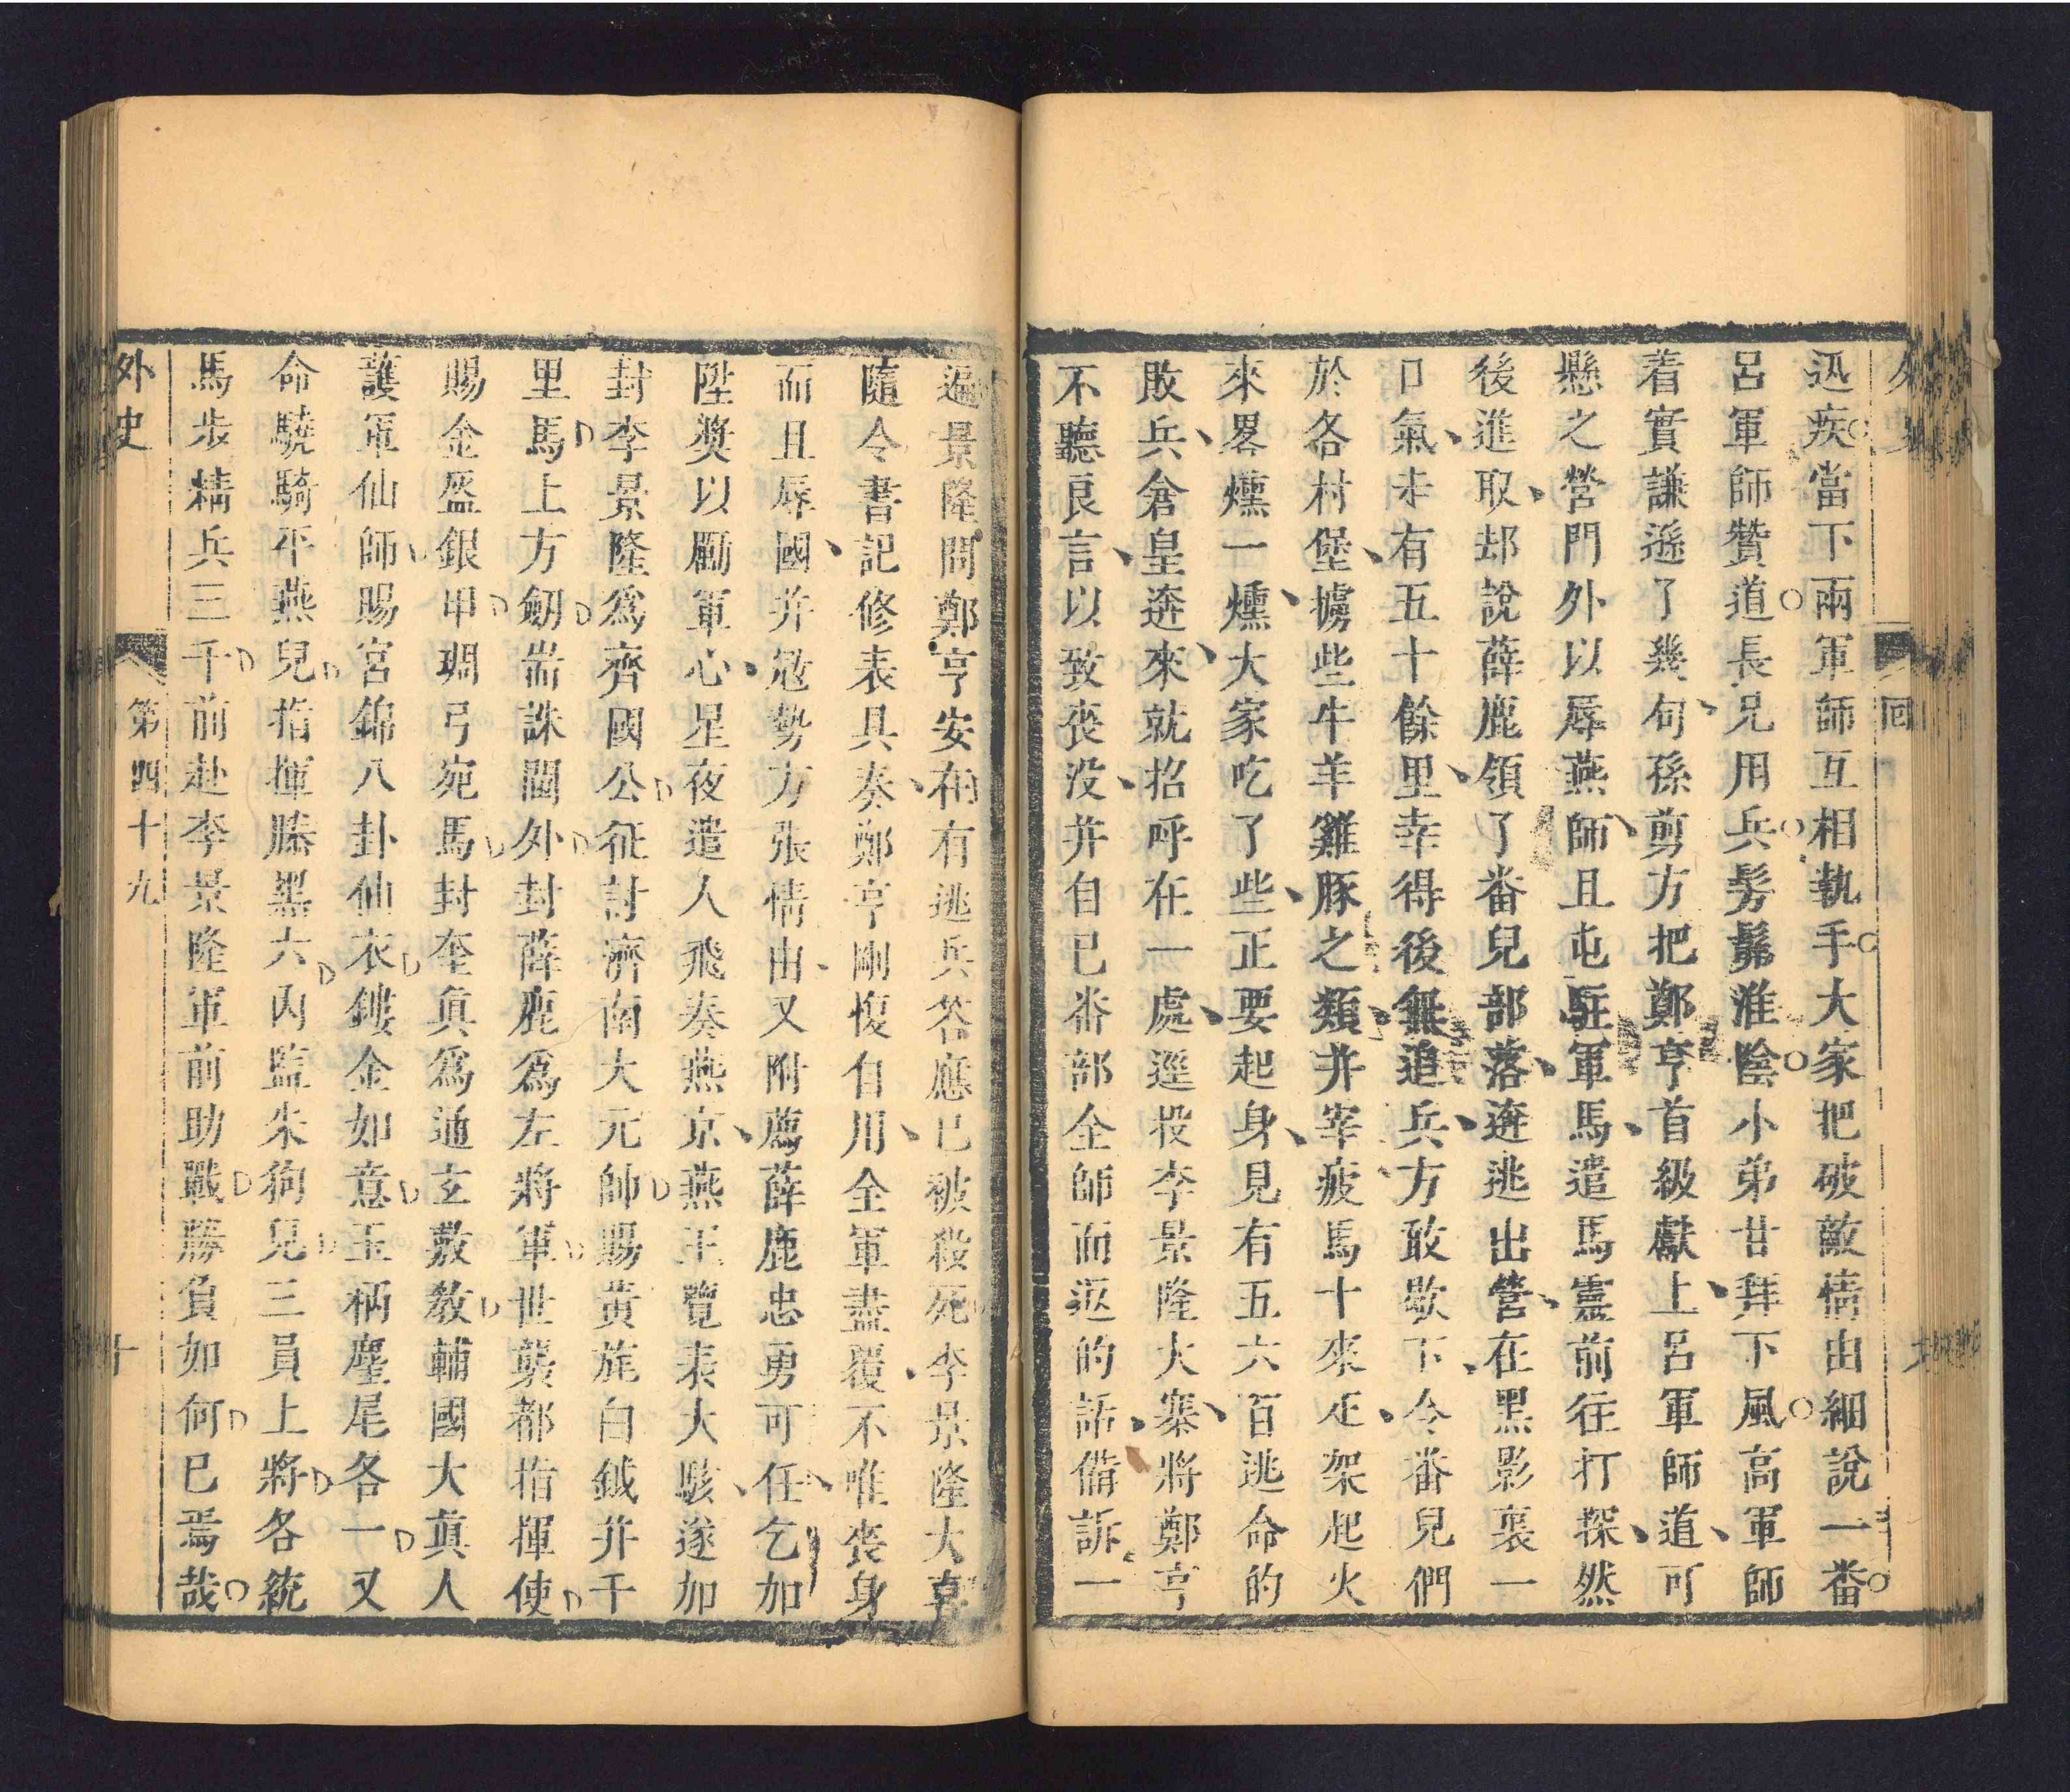 迅疾當下兩軍師互相執手大家把破敵情由細說一番
呂軍師贊道長兄用兵髣髴淮陰小弟甘拜下風高軍師
着實謙遜了幾句孫剪方把鄭亨首級獻上呂軍師道可
懸之營門外以辱燕師且屯駐軍馬遣馬靈前往打探然
後進取却說薛鹿領了番兒部落逩逃出營在黑影裏一
口氣走有五十餘里幸得後無追兵方敢歇下令番兒們
於各村堡擄些牛羊雞豚之類并宰疲馬十來疋架起火
來畧燻一燻大家吃了些正要起身見有五六百逃命的
敗兵倉皇逩來就招呼在一處逕投李景隆大寨將鄭亨
不聽良言以致喪没并自己番部全師而返的話備訴一
遍景隆問鄭亨安在有逃兵荅應已被殺死李景隆大喜
隨令書記修表具奏鄭亨剛愎自用全軍盡覆不唯喪身
而且辱國并冦勢方張情由又附薦薛鹿忠勇可任乞加
陞奬以勵軍心星夜遣人飛奏燕京燕王覽表大駭遂加
封李景隆爲齊國公征討濟南大元帥賜黃旄白鉞并千
里馬上方劒耑誅閫外封薛鹿爲左將軍世襲都指揮使
賜金盔銀甲琱弓宛馬封奎眞爲通玄敷敎輔國大眞人
護軍仙師賜宮錦八卦仙衣鏤金如意玉柄麈尾各一又
命驍騎平燕兒指揮滕黑六內監朱狗兒三員上將各統
馬步精兵三千前赴李景隆軍前助戰勝負如何已焉哉
外史
第四十九
十